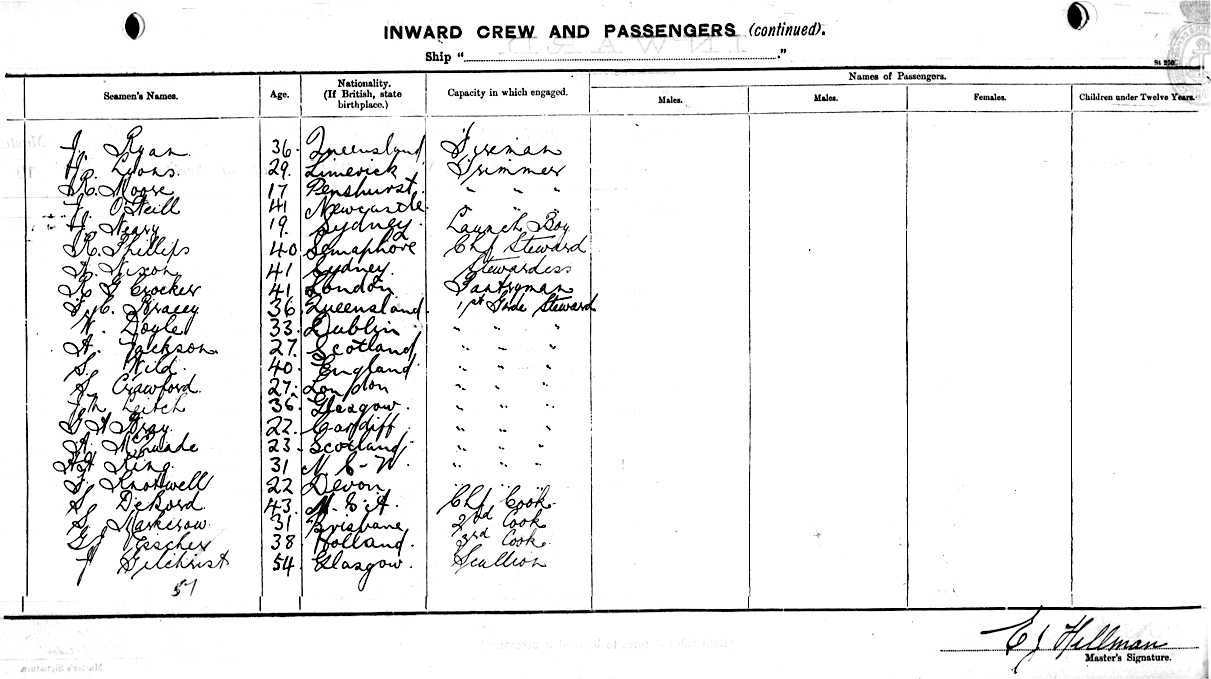 INWARD CREW AND PASSENGERS (continued).
Ship "..."
St 256.
Seamen's Names. Age. Nationality. (If British, state birthplace.) Capacity in which engaged. Names of Passengers.
Males. Males. Females. Children under Twelve Years.
J. Ryan 36 Queensland Fireman
H. Lyons. 29. Limerick Trimmer
R. Moore 17 Penshurst. " " "
J O'Neill 41 Newcastle. " " "
H. Neary 19. Sydney. Launch Boy
R. Phillips 40 Semaphore Chf Steward
A. Nixon 41 Sydney. Stewardess
R G Crocker 41 London Pantryman
F. C. Bracey 36 Queensland. 1st Grde Steward
W. Doyle 33. Dublin " " "
A. Jackson. 27. Scotland " " "
S. Wild. 40. England " " "
S. Crawford. 27. London " " "
J. M. Leitch 36 Glasgow. " " "
G W Bray 22. Cardiff " " "
A. McQuade 23 Scotland " " "
King. 31 N S-W. " " "
F. Knottwell 22 Devon
S. DeKord 43. Chf Cook
S. 31 Brisbane 2nd Cook
G J Visscher 38 Holland. 3rd Cook
J Gilchrist 54 Glasgow. Scullion
51
E J Hellman
Master's Signature.